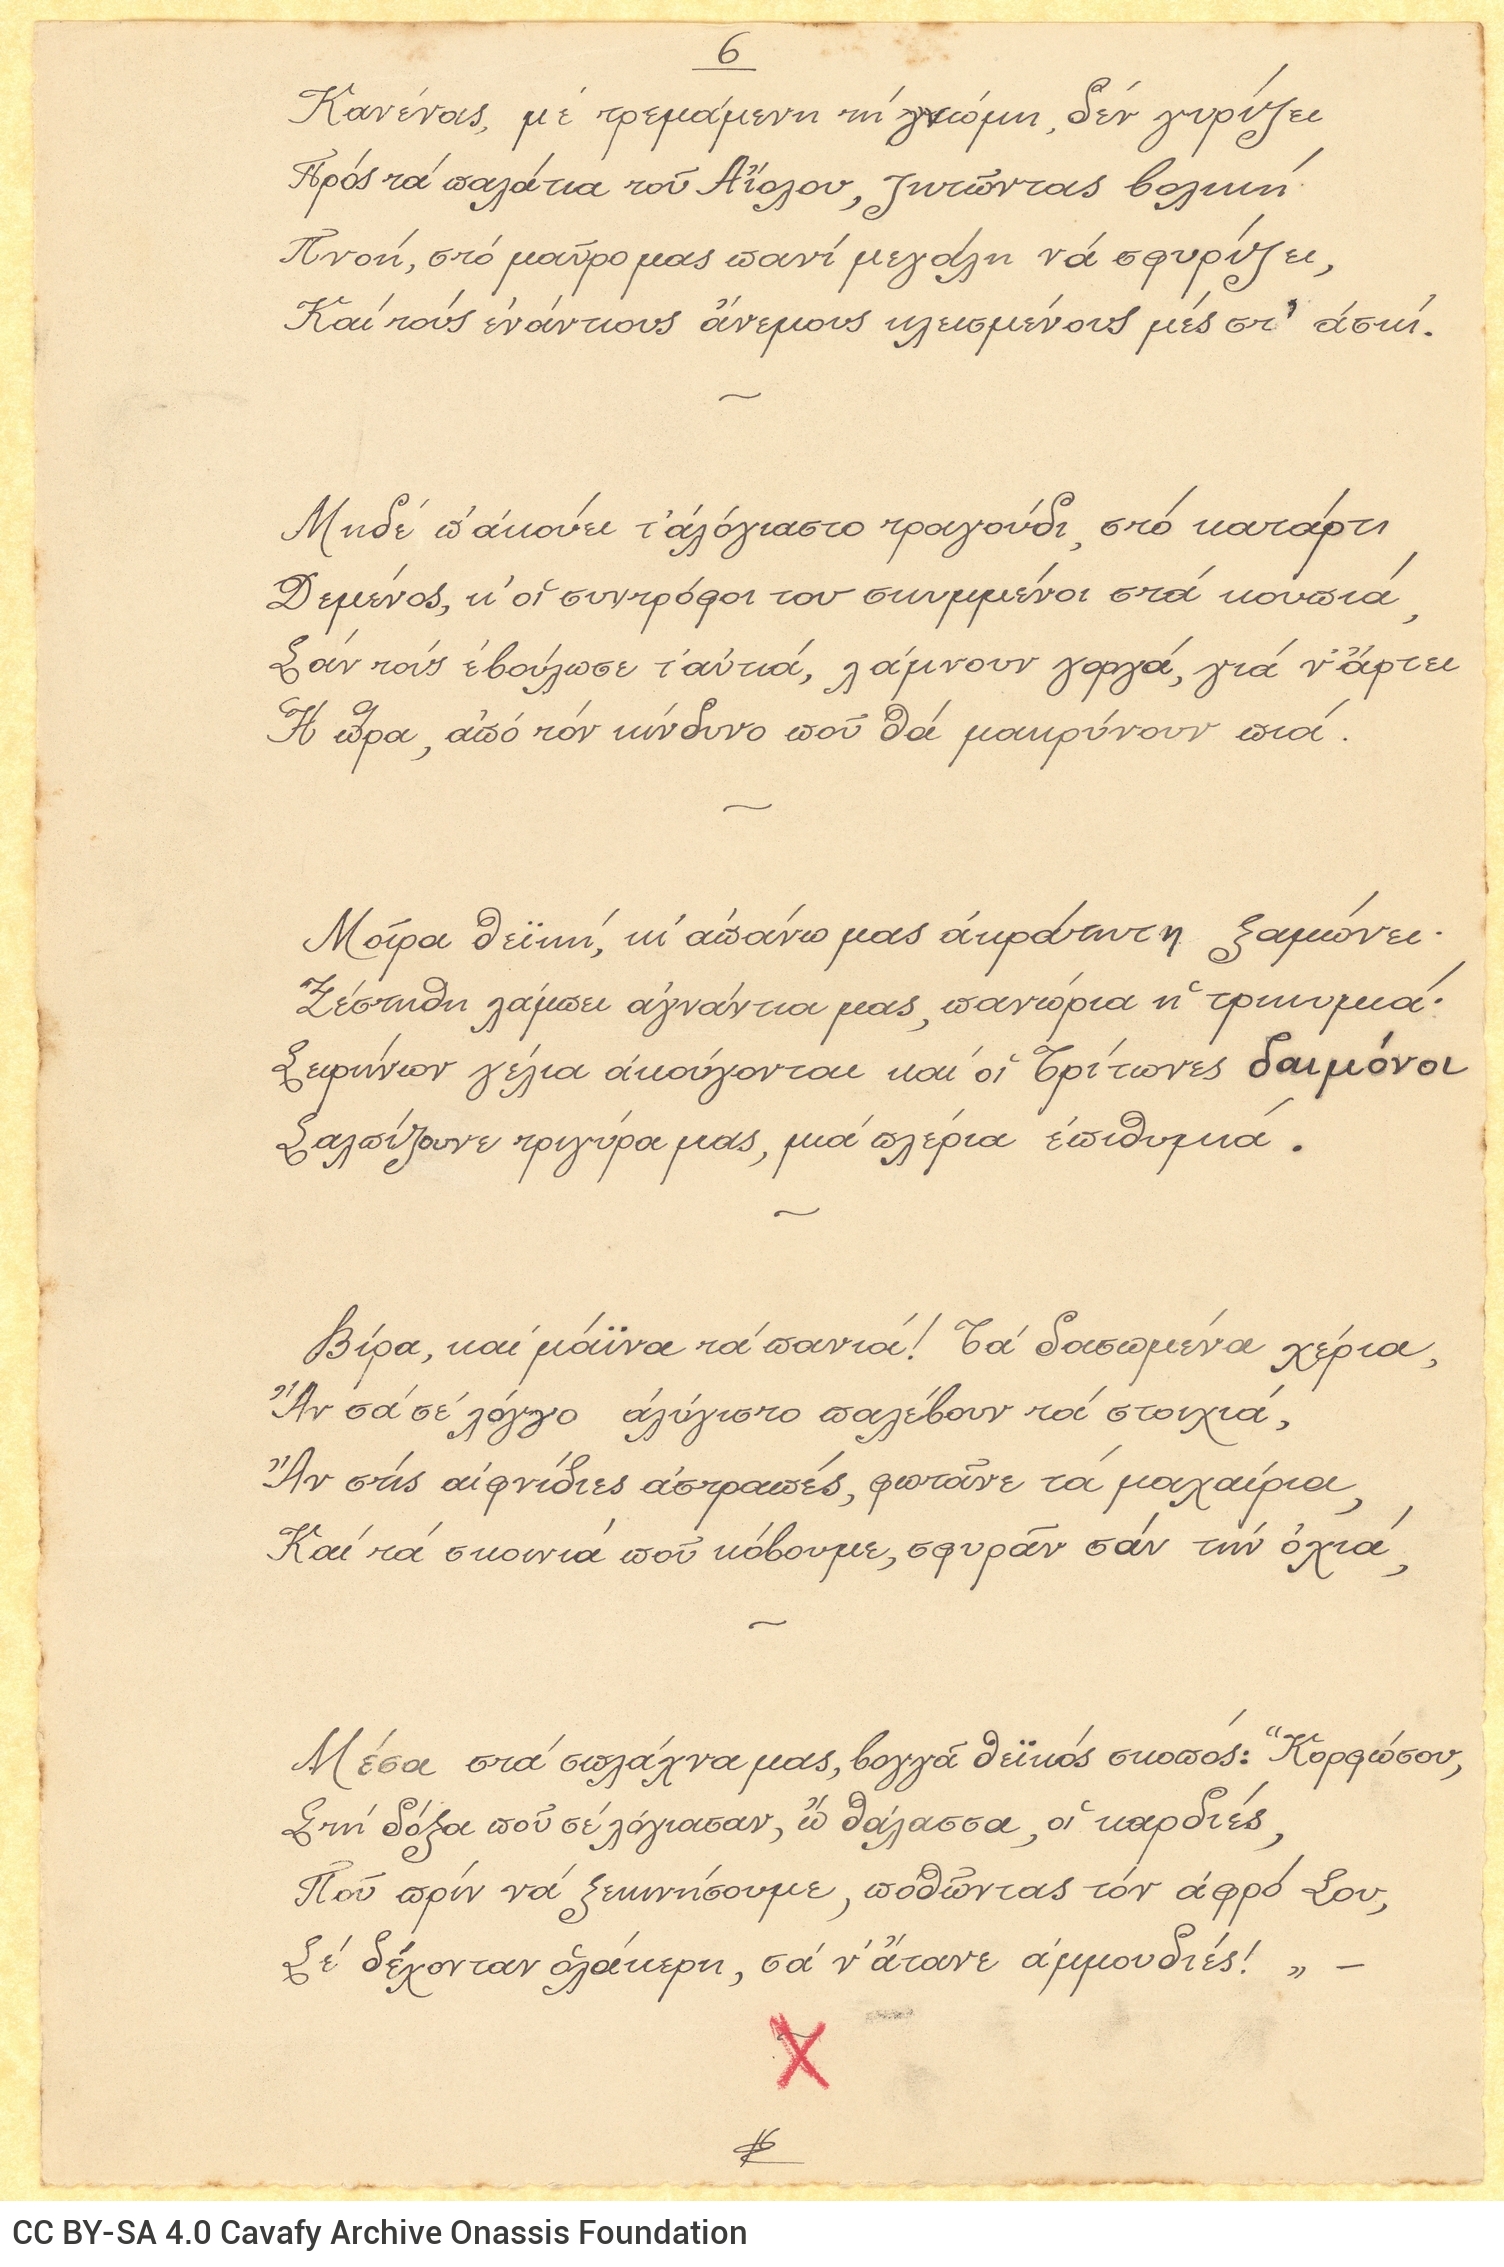 6
Κανένας, μέ τρεμάμενη τή γνώμη, δέν γυρίζει
Πρός τά παλάτια τοῦ Αἴολου, ζητῶντας βολική
Πνοή, στό μαῦρο μας πανί μεγάλη νά σφυρίζει,
Καί τούς ἐνάντιους ἄνεμους κλεισμένους μές στ' ἀσκί.
~
Μηδέ π' ἀκούει τ' ἀλόγιαστο τραγούδι, στό κατάρτι
Δεμένος, κ' οἱ συντρόφοι του σκυμμένοι στά κουπιά,
Σάν τούς ἐβούλωσε τ' αὐτιά, λάμνουν γοργά, γιά ν' ἄρτει
Ἡ ὥρα, ἀπό τόν κίνδυνο ποῦ θά μακρύνουν πιά.
~
Μοῖρα θεϊκή, κι' ἀπάνω μας ἀκράτητη ξαμώνει·
Ξέστηθη λάμπει ἀγνάντια μας, πανώρια ἡ τρικυμιά·
Σειρήνων γέλια ἀκούγονται καί οἱ Τρίτωνες δαιμόνοι
Σαλπίζουνε τριγύρα μας, μιά πλέρια ἐπιθυμιά.
~
Βίρα, καί μάϊνα τά πανιά! Τά δασωμένα χέρια,
Ἄν σά σέ λόγγο ἀλύγιστο παλέβουν τά στοιχιά,
Ἄν στίς αἰφνίδιες ἀστραπές, φωτᾶνε τά μαχαίρια,
Καί τά σκοινιά ποῦ κόβουμε, σφυρᾶν σάν τήν ὀχιά,
~
Μέσα στά σπλάχνα μας, βογγᾶ θεϊκός σκοπός: "Κορφώσου,
Στή δόξα ποῦ σέ λόγιασαν, ὦ θάλασσα, οἱ καρδιές,
Ποῦ πρίν νά ξεκινήσουμε, ποθῶντας τόν ἀφρό Σου,
Σέ δέχονταν ὁλάκερη, σά ν' ἄτανε ἀμμουδιές! „ —
X
CC BY-SA 4.0 Cavafy Archive Onassis Foundation